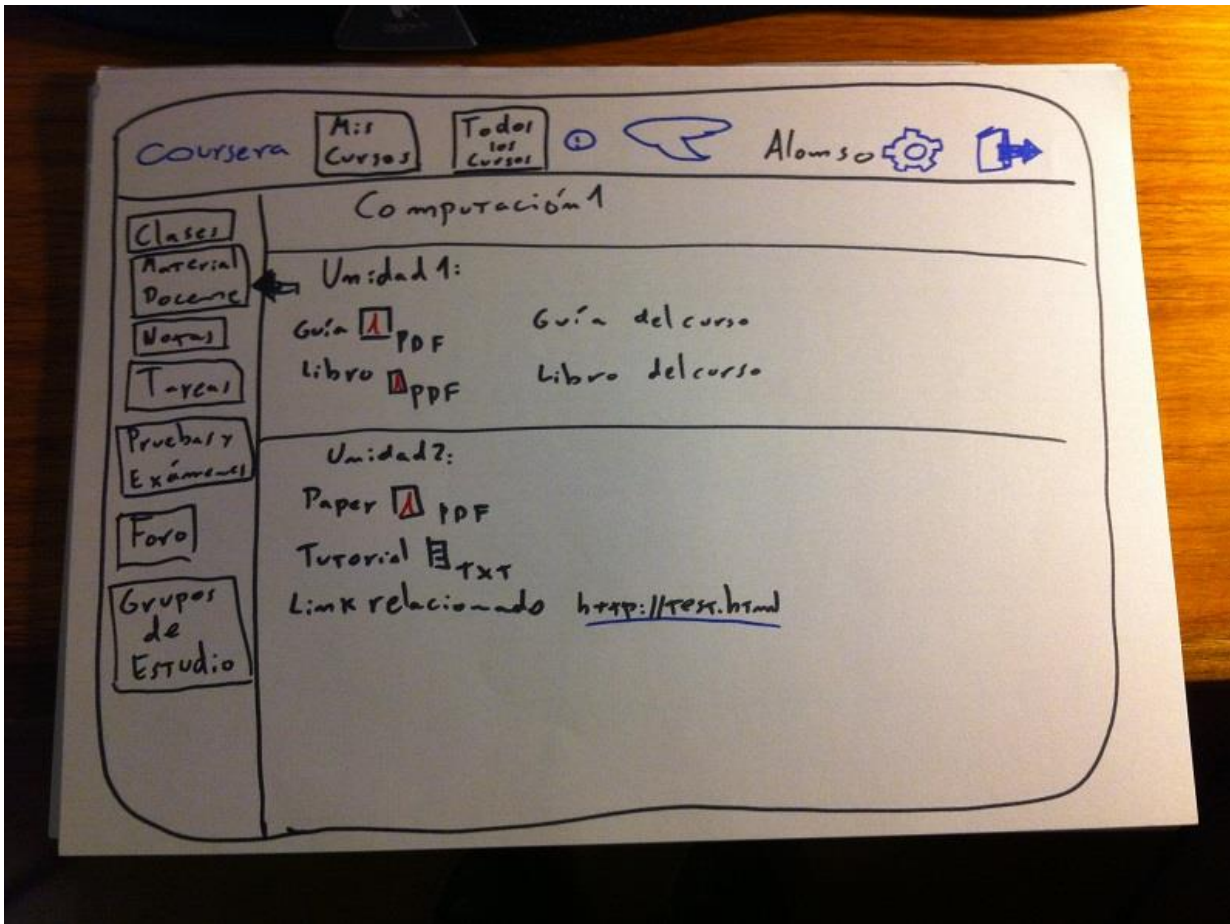 Coursera
Mis
Cursos
Todos
los
Cursos
Alonso
Computación 1
Clases
Material
Docente
Notas
Tareas
Pruebas y
Exámenes
Foro
Grupos
de
Estudio
Unidad 1:
Guía PDF Guía del curso
Libro PDF Libro del curso
Unidad 2:
Paper PDF
Tutorial TXT
Link relacionado http://test.html